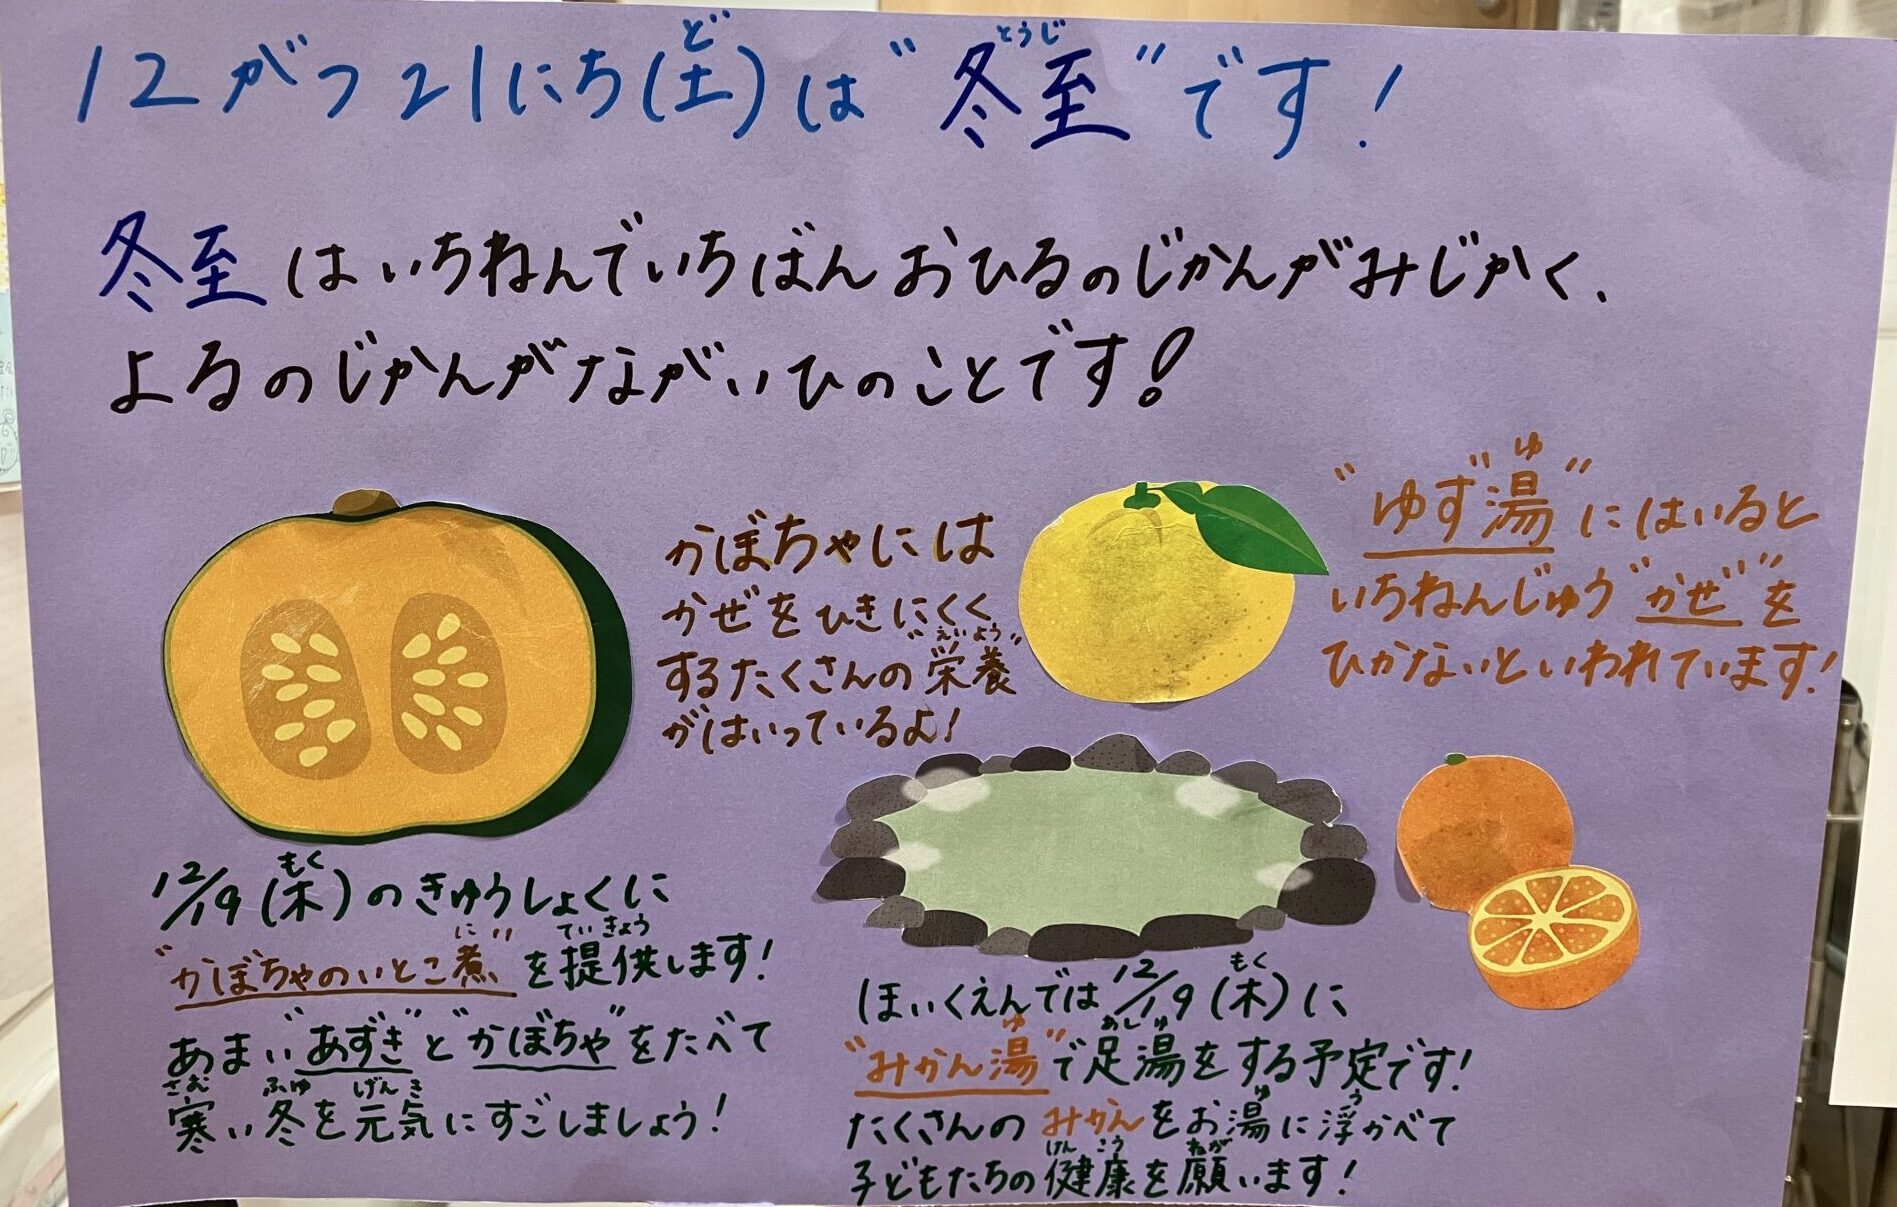 12がつ21にち(土)は"冬至"です!
ど
とうじ
冬至はいちねんでいちばんおひるのじかんがみじかく、
よるのじかんがながいひのことです!
かぼちゃには
かぜをひきにくく
するたくさんの"栄養"
えいよう
がはいっているよ!
"ゆず湯"にはいると
ゆ
いちねんじゅう"かぜ"を
ひかないといわれています!
12/19(木)のきゅうしょくに
もく
"かぼちゃのいとこ煮"を提供します!
に
ていきょう
あまい"あずき"と"かぼちゃ"をたべて
寒い冬を元気にすごしましょう!
さむ
ふゆ
げんき
ほいくえんでは12/19(木)に
もく
"みかん湯"で足湯をする予定です!
ゆ
あしゆ
たくさんのみかんをお湯に浮かべて
ゆ
う
子どもたちの健康を願います!
けんこう
ねが